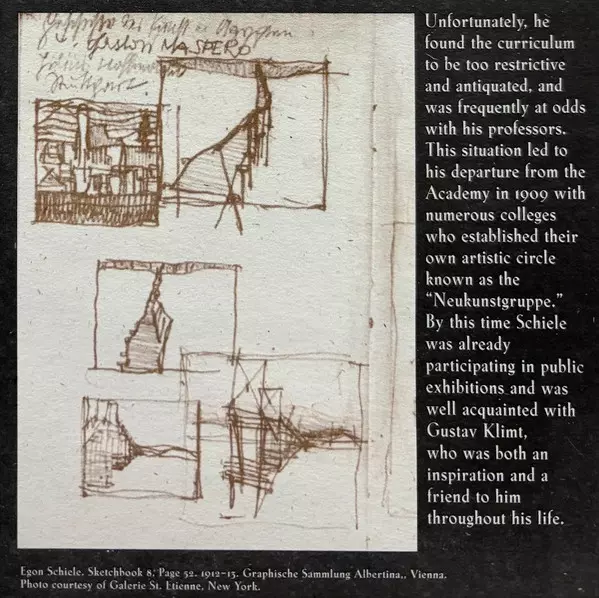 Geschichte der Kunst in Aegypten
Gaston MASPERO
Julius Hoffmann
Stuttgart.
Unfortunately, he
found the curriculum
to be too restrictive
and antiquated, and
was frequently at odds
with his professors.
This situation led to
his departure from the
Academy in 1909 with
numerous colleges
who established their
own artistic circle
known as the
“Neukunstgruppe.”
By this time Schiele
was already
participating in public
exhibitions and was
well acquainted with
Gustav Klimt,
who was both an
inspiration and a
friend to him
throughout his life.
Egon Schiele. Sketchbook 8, Page 52. 1912-13. Graphische Sammlung Albertina,, Vienna.
Photo courtesy of Galerie St. Etienne, New York.